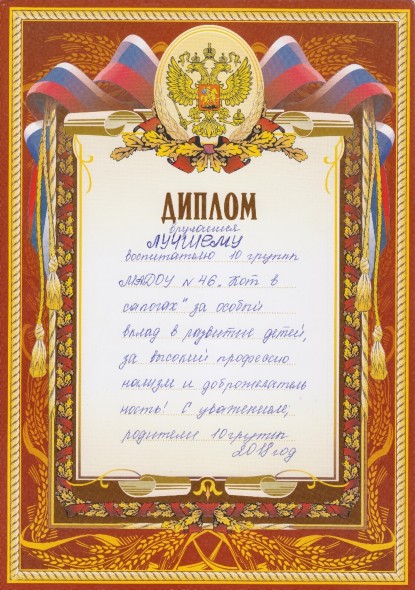 ДИПЛОМ
вручается
ЛУЧШЕМУ
воспитателю 10 группы
МАДОУ № 46 „Кот в
сапогах" за особый
вклад в развитие детей,
за высокий профессио
нализм и доброжелатель
ность! С уважением,
родители 10 группы
2018 год